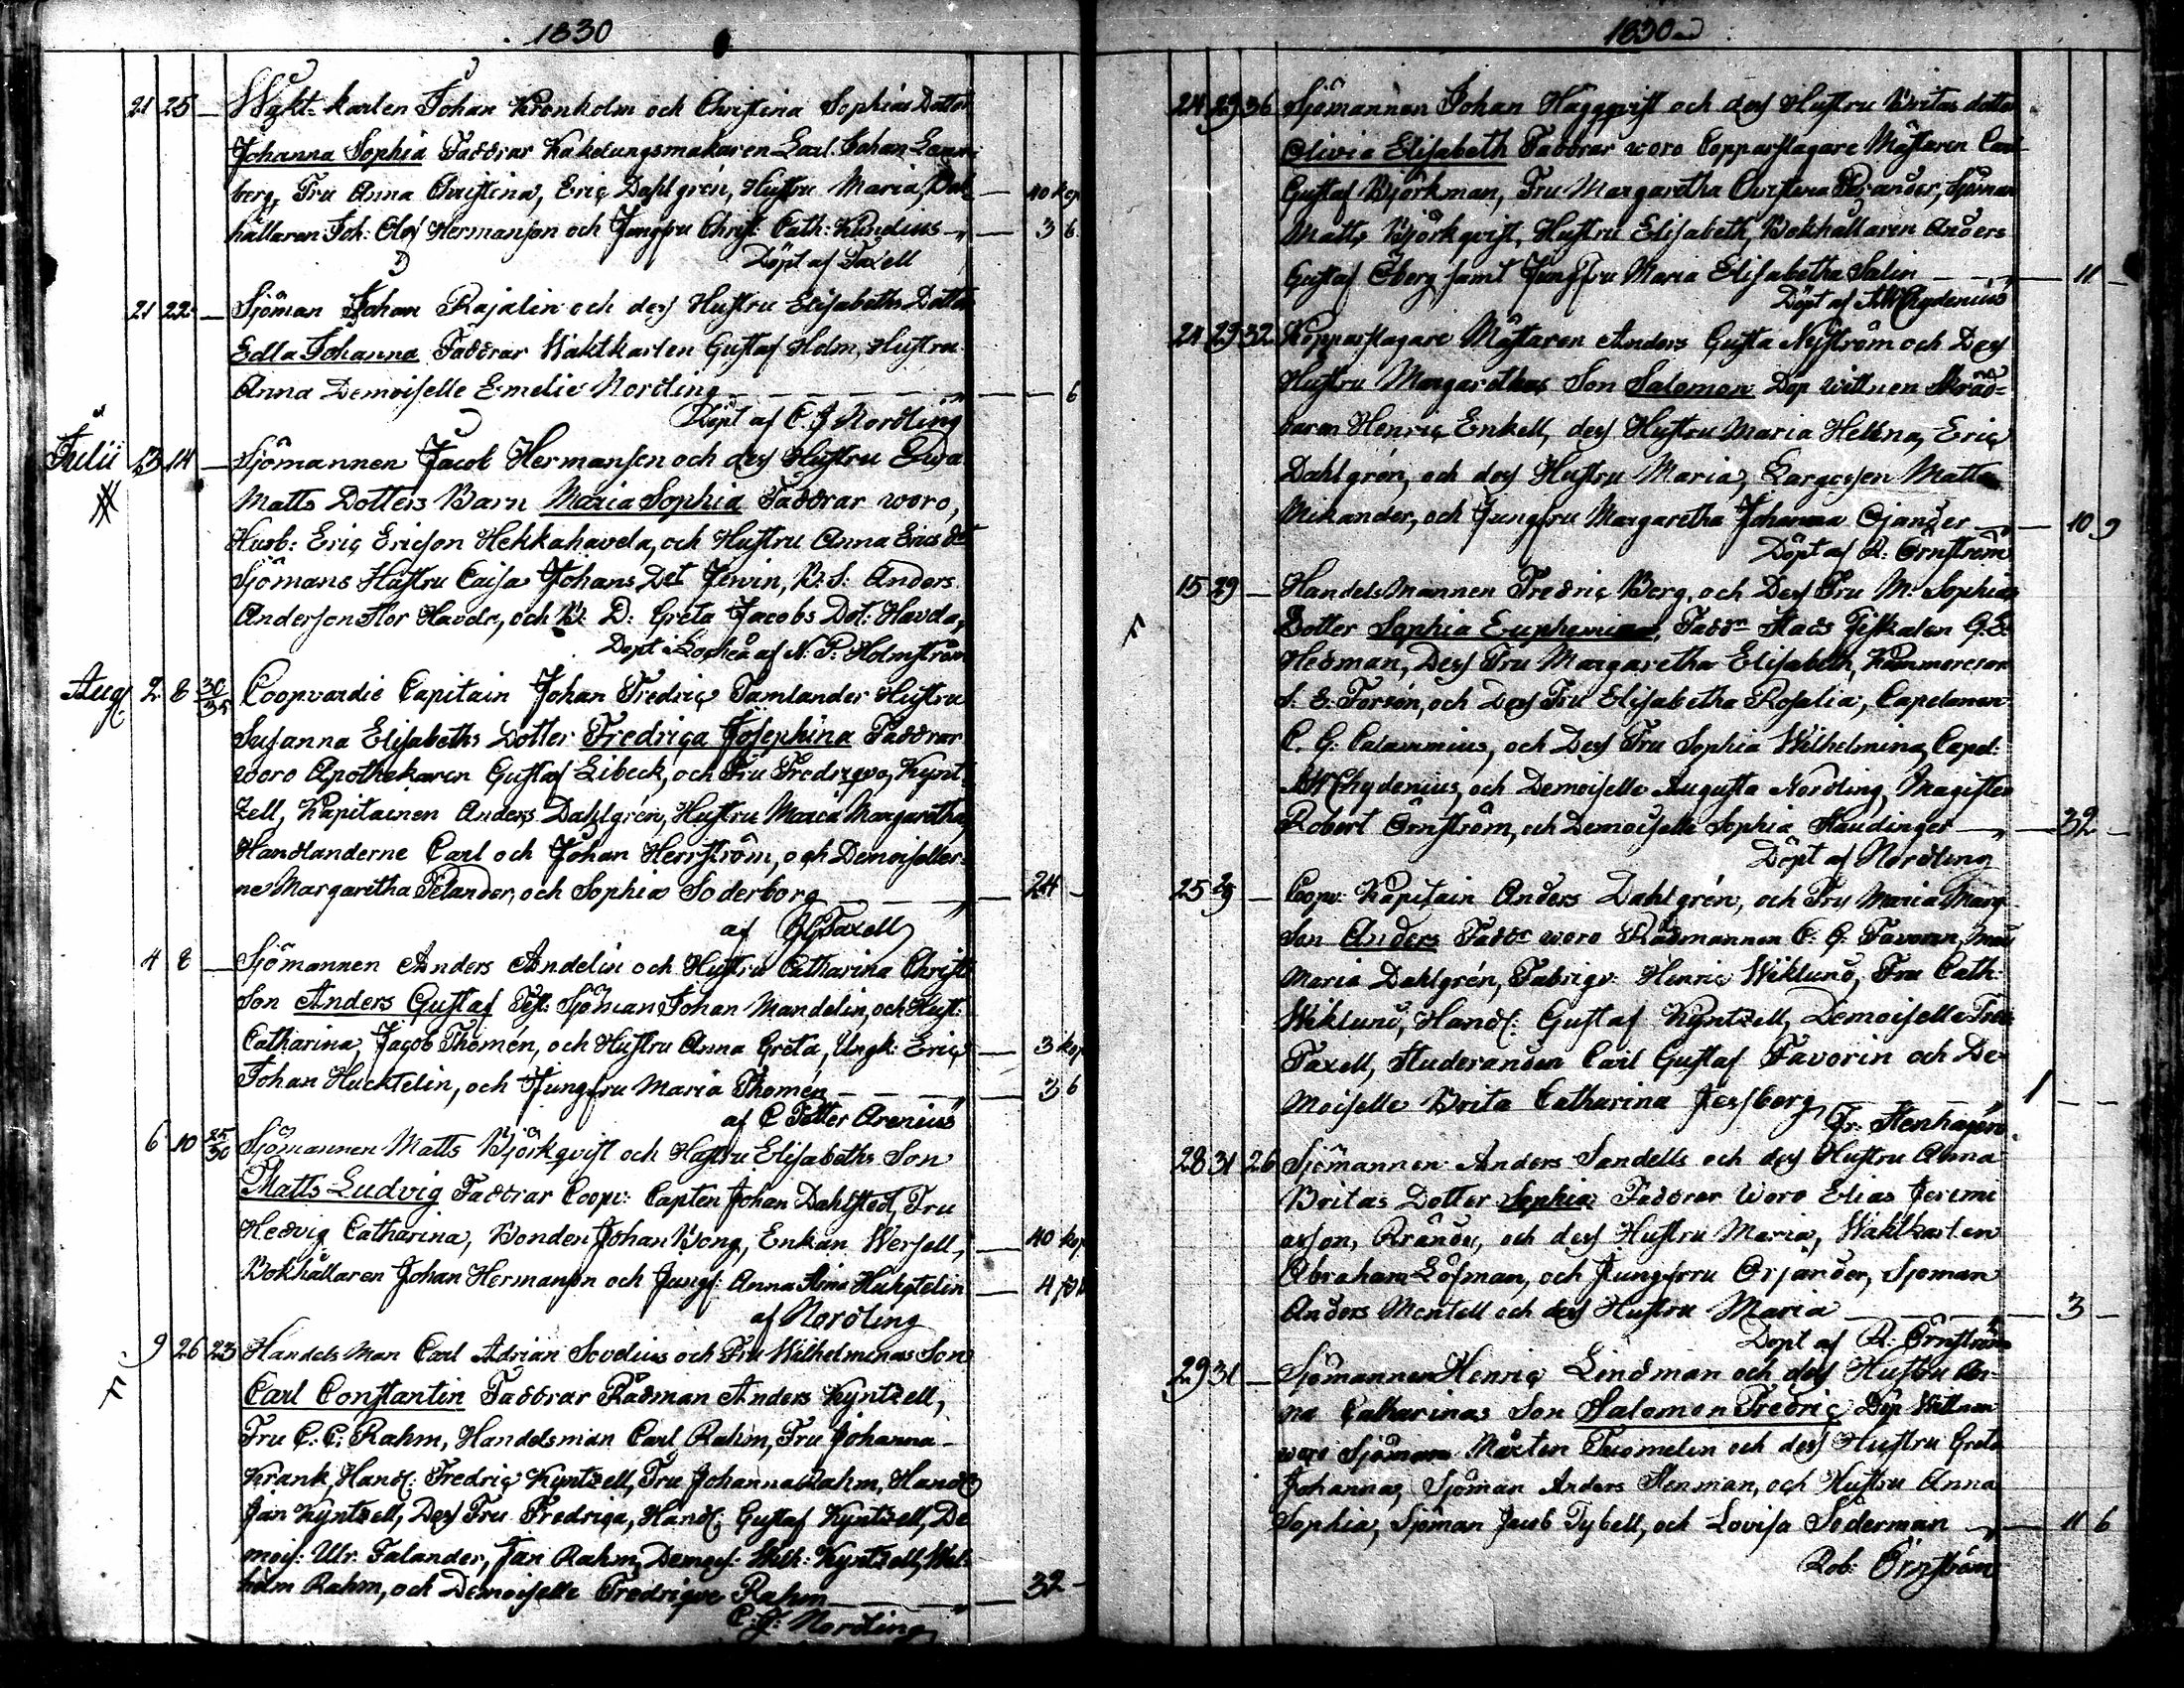 1830
21 25 — Wakt-karlen Johan Kronholm och Christina Sophias Dotter
Johanna Sophia Faddrar Kakelungsmakaren Carl Johan
berg, Fru Anna Christina, Eric Dahlgrén, Hustru Maria, Bok — 40 kop
hållaren Joh: Olof Hermanson och Jungfru Christ: Cath: — 3 6
Döpt af Taxell
21 22 — Sjöman Johan Rajalin och dess Hustru Elisabeths Dotter
Edla Johanna Faddrar Waktkarlen Gustaf Holm, Hustru
Anna Demoiselle Emelie Nordling — 6
Döpt af C. J Nordling
Julii 13 14 — Sjömannen Jacob Hermanson och dess Hustru Ewa
Matts Dotters Barn Maria Sophia Faddrar woro,
Husb: Eric Ericson Hekkahavela, och Hustru Anna Erics dr
Sjömans Hustru Caisa Johans Dot Jervin, B. S: Anders
Anderson Stor Havda, och B. D: Greta Jacobs Dot: Havda,
Döpt i Lochteå af N. P. Holmström
Aug 2 8 30/35 Coopvardie Capitain Johan Fredric Tamlander Hustru
Susanna Elisabeths Dotter Fredrica Josephina Faddrar
woro Apothekaren Gustaf Libeck, och Fru Fredriqve, Kynt
zell, Kapitainen Anders Dahlgrén, Hustru Maria Margaretha,
Handlanderne Carl och Johan Herrström, och Demoiseller-
ne Margaretha Pelander, och Sophia Soderborg — 24 —
af Taxell
4 8 — Sjömannen Anders Andelin och Hustru Catharina Christ:
Son Anders Gustaf Test: Sjöman Johan Mandelin, och Hust:
Catharina, Jacob Thomén, och Hustru Anna Greta, Ungk: Eric — 3 kop
Johan Hucktelin, och Jungfru Maria Thomén — 3 6
af C Petter Arenius
6 10 25/30 Sjömannen Matts Björkqvist och Hustru Elisabeths Son
Matts Ludvig Faddrar Coopv: Capten Johan Dahlsted, Fru
Hedvig Catharina, Bonden Johan Bong, Enkan Wersell, — 40 kop
Bokhållaren Johan Hermanson och Jungf: Anna Stina Huhgtelin — 4
af Nordling
9 26 23 Handels Man Carl Adrian Sovelius och Fru Wilhelminas Son
Carl Constantin Faddrar Rådman Anders Kyntzell,
Fru C: C: Rahm, Handelsman Carl Rahm, Fru Johanna
Krank, Handl: Fredric Kyntzell, Fru Johanna Rahm, Handl
Jan Kyntzell, Dess Fru Fredrica, Handl: Gustaf Kyntzell, De
mois: Ulr: Falander, Jan Rahm, Demois: Wilh: Kyntzell, Wil-
helm Rahm, och Demoiselle Fredriqve Rahm — 32 —
C. J. Nordling
1830
24 29 36 Sjömannen Johan Häggqvist och dess Hustru Britas dotter
Olivia Elisabeth Faddrar woro Copparslagare Mästaren Carl
Gustaf Björkman, Fru Margaretha Christina, Sjöman
Matts Björkqvist, Hustru Elisabeth, Bokhållaren Anders
Gustaf Öberg samt Jungfru Maria Elisabetha Salin — 11 —
Döpt af Chydenius
21 29 32 Kopparslagare Mästaren Anders Gusta Nyström och Dess
Hustru Margarethas Son Salomon Dop wittnen Skräd-
daren Henric Enkell, dess Hustru Maria Helena, Eric
Dahlgrén, och dess Hustru Maria, Matts
Mikander, och Jungfru Margaretha Johanna Ojander — 10 9
Döpt af R: Örnström
15 29 — HandelsMannen Fredric Berg, och Dess Fru M: Sophias
Dotter Sophia Euphemia, Faddr Stads Fiskalen G. E:
Hedman, Dess Fru Margaretha Elisabeth, Kammereren
S. E. Forsén, och Dess Fru Elisabetha Rosalia, Capelanen
C. G. Calamnius, och Dess Fru Sophia Wilhelmina, Capel:
Chydenius, och Demoiselle Augusta Nordling, Magister
Robert Örnström, och Demoiselle Sophia Haudinger — 32 —
Döpt af Nordling
25 29 — Coopv: Kapitain Anders Dahlgrén, och Fru Maria Marg
Son Anders Faddr woro Rådmannen C. G. Favorin,
Maria Dahlgrén, Fabriqv: Henric Wiklund, Fru Cath:
Wiklund, Handl: Gustaf Kyntzell, Demoiselle
Taxell, Studeranden Carl Gustaf Favorin och De-
moiselle Brita Catharina Jessberg — 1 — —
Fr: Stenhagen
28 31 26 Sjömannen Anders Sandells och dess Hustru Anna
Britas Dotter Sophia Faddrar woro Elias Jeremi
asson, Brändu, och dess Hustru Maria, Waktkarlen
Abraham Löfman, och Jungfrru Orjander, Sjoman
Anders Mentell och dess Hustru Maria — 3 —
Döpt af R: Örnström
29 31 — Sjömannen Henric Lindman och dess Hustru An-
na Catharinas Son Salomon Fredric Dop Wittnen
woro Sjöman Mårten Tuomelin och dess Hustru Greta
Johanna, Sjöman Anders Stenman, och Hustru Anna
Sophia, Sjöman Jacob Tybell, och Lovisa Söderman — 11 6
Rob: Örnström